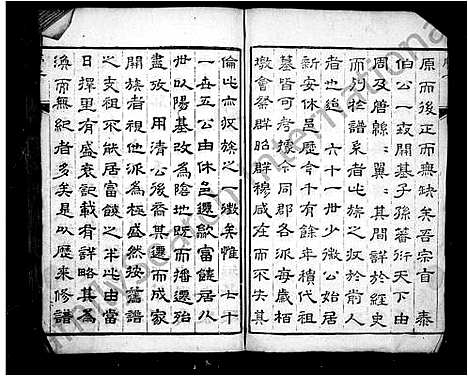 原而後正而無缺矣吾宗自 泰
伯公一啟開基子孫蕃衍天下由
周及唐緜緜翼翼其間詳於經史
而列於譜系者此族之攷於前人
者也迨 六十一世少微公始居
新安休邑歷今千有餘年積代祖
墓皆可考據合同郡各派每歲栢
墩會祭群昭群穆咸在而不失其
倫此亦攷族之徵矣惟 七十
一世五公由休邑遷歙富饒居八
世以陽基改為陰地既而播遷殆
盡攷 用清公後裔其遷而成家
開族者視他派為極盛然按舊譜
之支祖不能居富饒之半此由當
日擇里有盛衰記載有詳略其為
渙而無紀者多矣是以歷來修譜